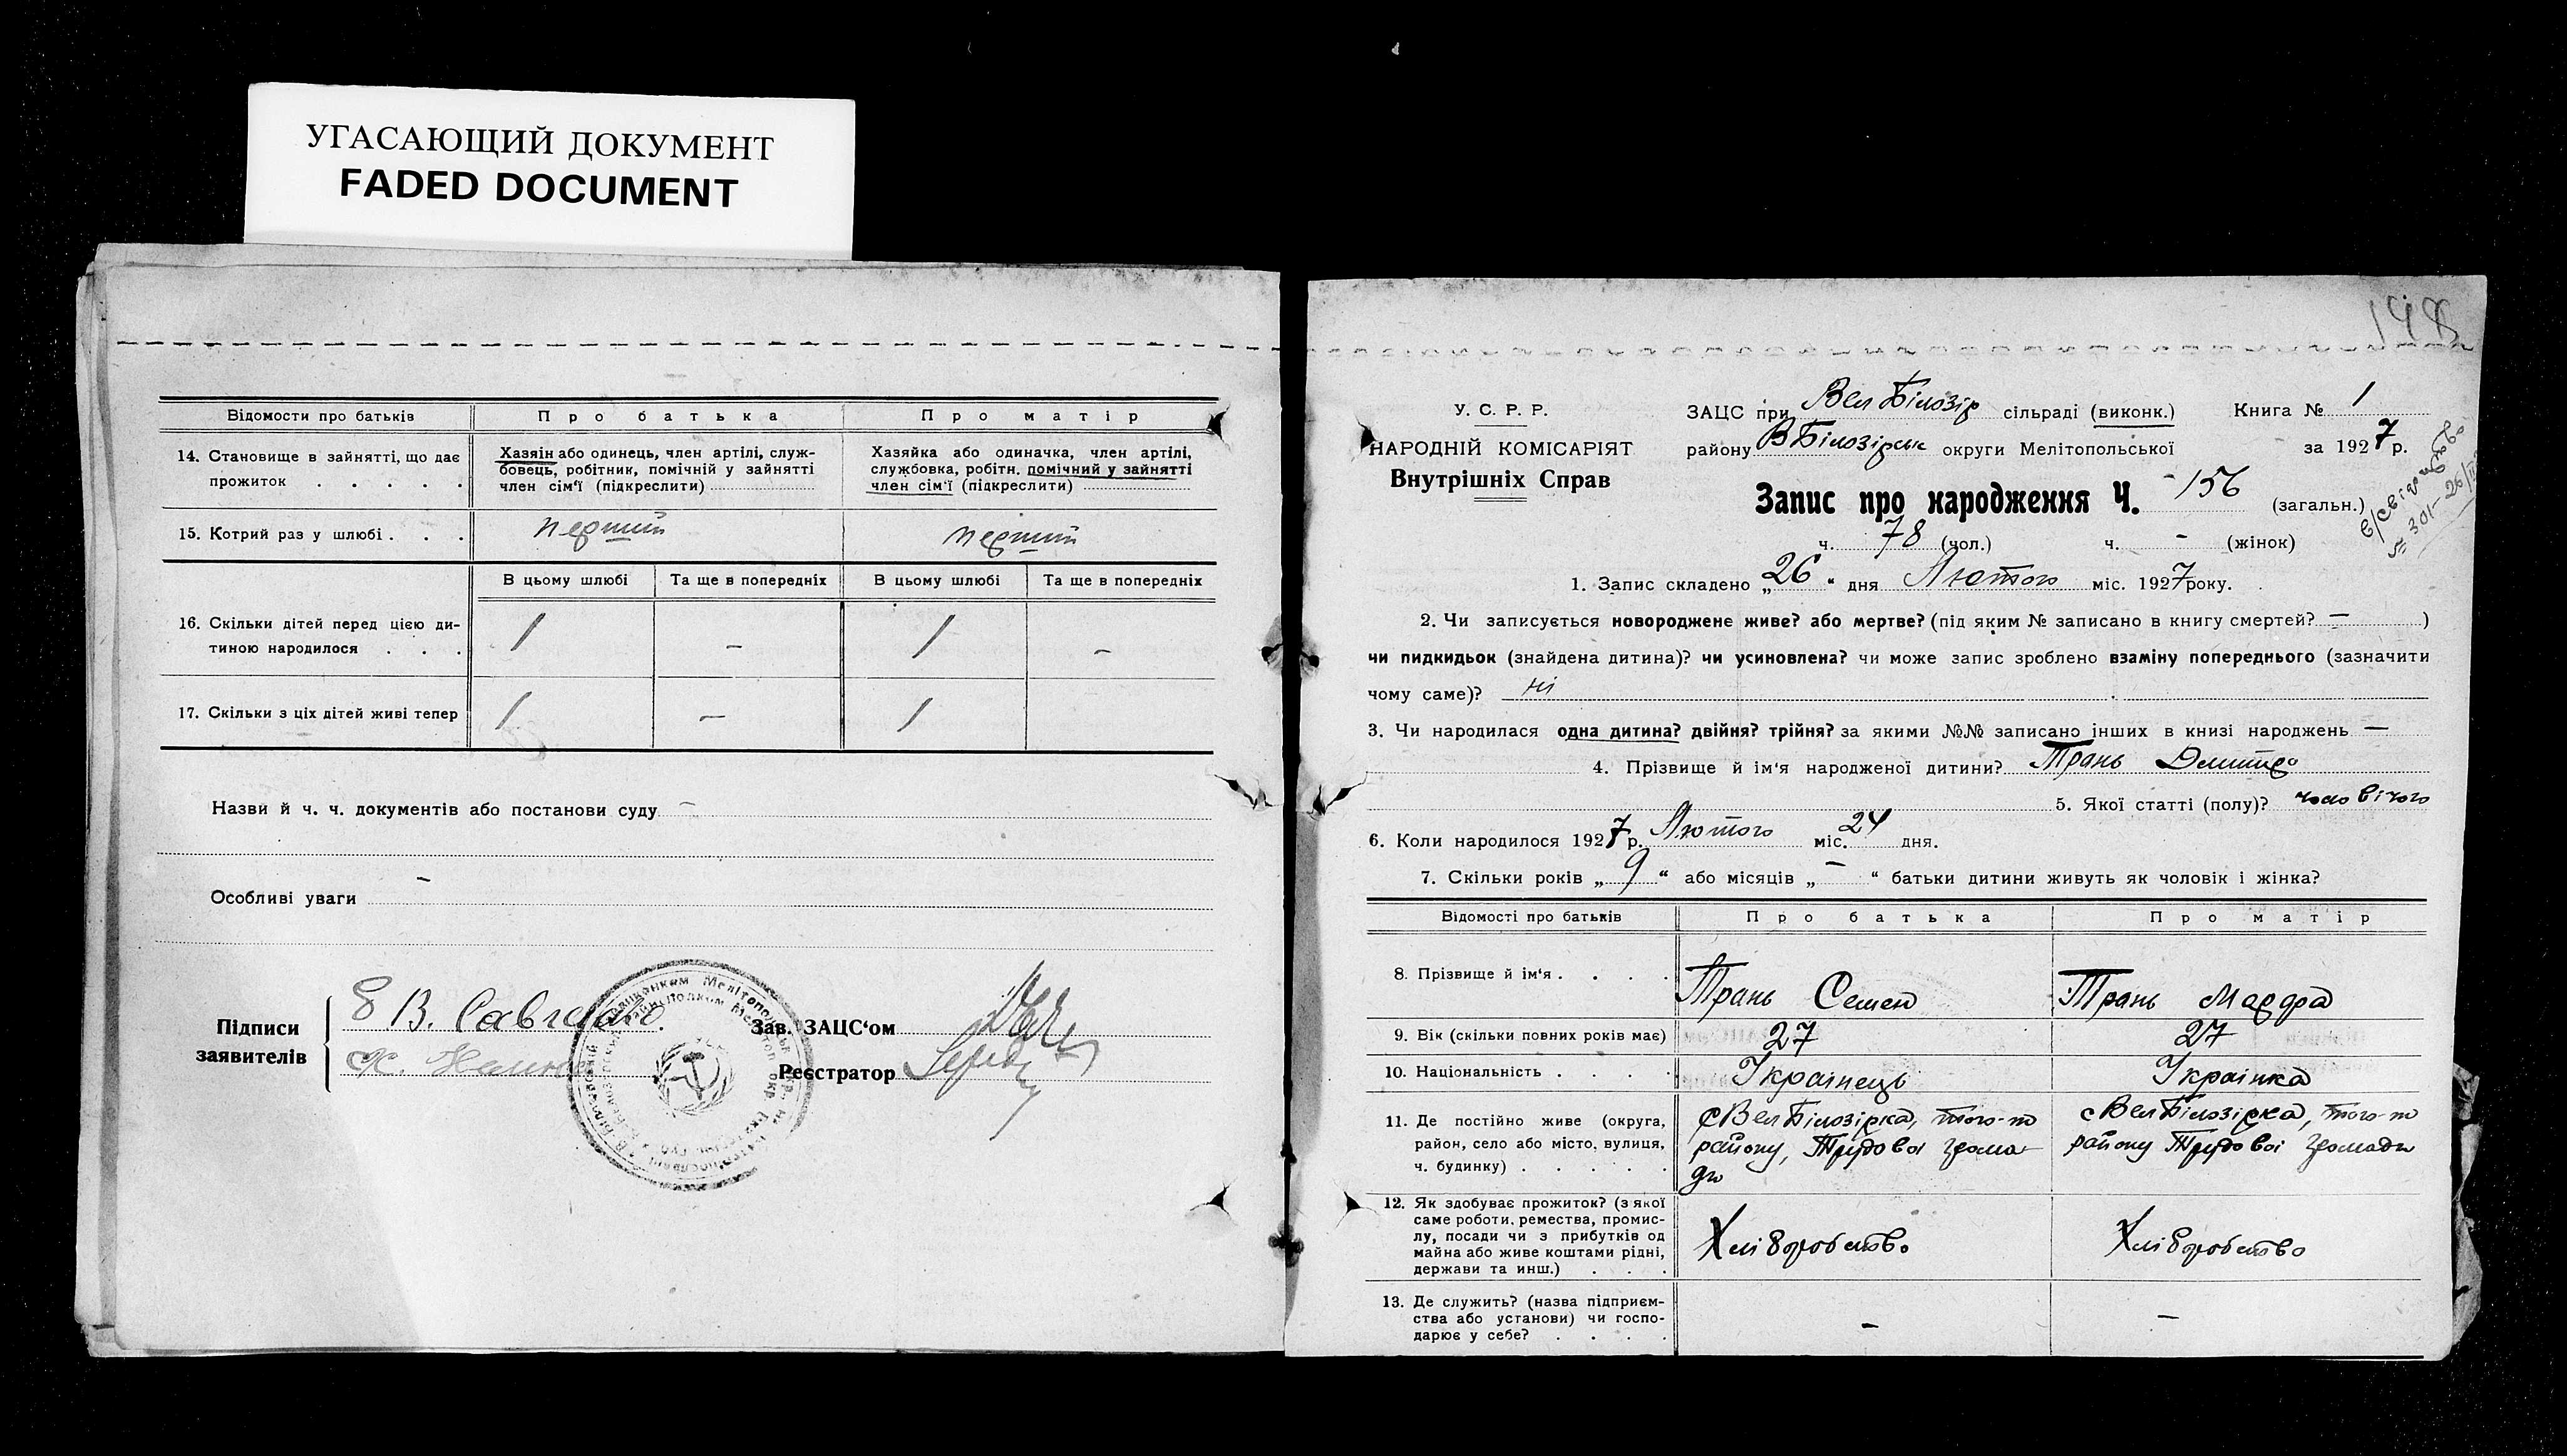 УГАСАЮЩИЙ ДОКУМЕНТ
FADED DOCUMENT
Відомости про батьків Про батька Про матір
14. Становище в зайнятті, що дає прожиток . . . . .
Хазяін або одинець, член артілі, служ-
бовець, робітник, помічній у зайнятті
член сім'ї (підкреслити)
Хазяйка або одиначка, член артілі,
службовка, робітн. помічний у зайнятті
член сім'ї (підкреслити)
15. Котрий раз у шлюбі . . . перший перший
В цьому шлюбі Та ще в попередніх В цьому шлюбі Та ще в попередніх
16. Скільки дітей перед цією ди-
тиною народилося . . . 1 - 1 -
17. Скільки з ціх дітей живі тепер 1 - 1
Назви й ч. ч. документів або постанови суду -
Особливі уваги -
Підписи
заявителів
Зав. ЗАЦС'ом
Реєстратор
148
У. С. Р. Р.
НАРОДНІЙ КОМІСАРІЯТ
Внутрішніх Справ
ЗАЦС при Вел Білозір сільраді (виконк.) Книга № 1
району ВБілозірськ округи Мелітопольської за 1927 р.
Запис про народження Ч. 156 (загальн.)
ч. 78 (чол.) ч. - (жінок)
1. Запис складено „26“ дня Лютого міс. 1927 року.
2. Чи записується новороджене живе? або мертве? (під яким № записано в книгу смертей? - )
чи пидкидьок (знайдена дитина)? чи усиновлена? чи може запис зроблено взаміну попереднього (зазначити
чому саме)? ні
3. Чи народилася одна дитина? двійня? трійня? за якими №№ записано інших в книзі народжень —
4. Прізвище й ім'я народженої дитини? Трань Дмитро
5. Якої статті (полу)? чоловічого
6. Коли народилося 1927 р. Лютого міс. 24 дня.
7. Скільки років „9“ або місяців „-“ батьки дитини живуть як чоловік і жінка?
Відомості про батьків Про батька Про матір
8. Прізвище й ім'я . . . . Трань Семен Трань Мардра
9. Вік (скільки повних років має) 27 27
10. Національність . . . . Українець Українка
11. Де постійно живе (округа,
район, село або місто, вулиця,
ч. будинку) . . . . .
с Вел Білозірка, того-ж
району, Трудової грома-
ди
с Вел Білозірка, того-ж
району Трудової громади
12. Як здобуває прожиток? (з якої
саме роботи, ремества, промис-
лу, посади чи з прибутків од
майна або живе коштами рідні,
держави та инш.) . . .
Хліборобство Хліборобство
13. Де служить? (назва підприєм-
ства або установи) чи госпо-
дарює у себе? . . . . - —